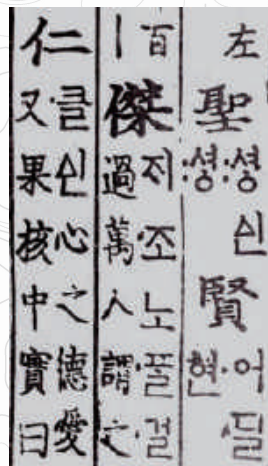 左聖·셩신·셩賢어·딜현
百丨傑직·조노·플·걸過萬人謂之
仁·클신心之德愛又果核中實曰